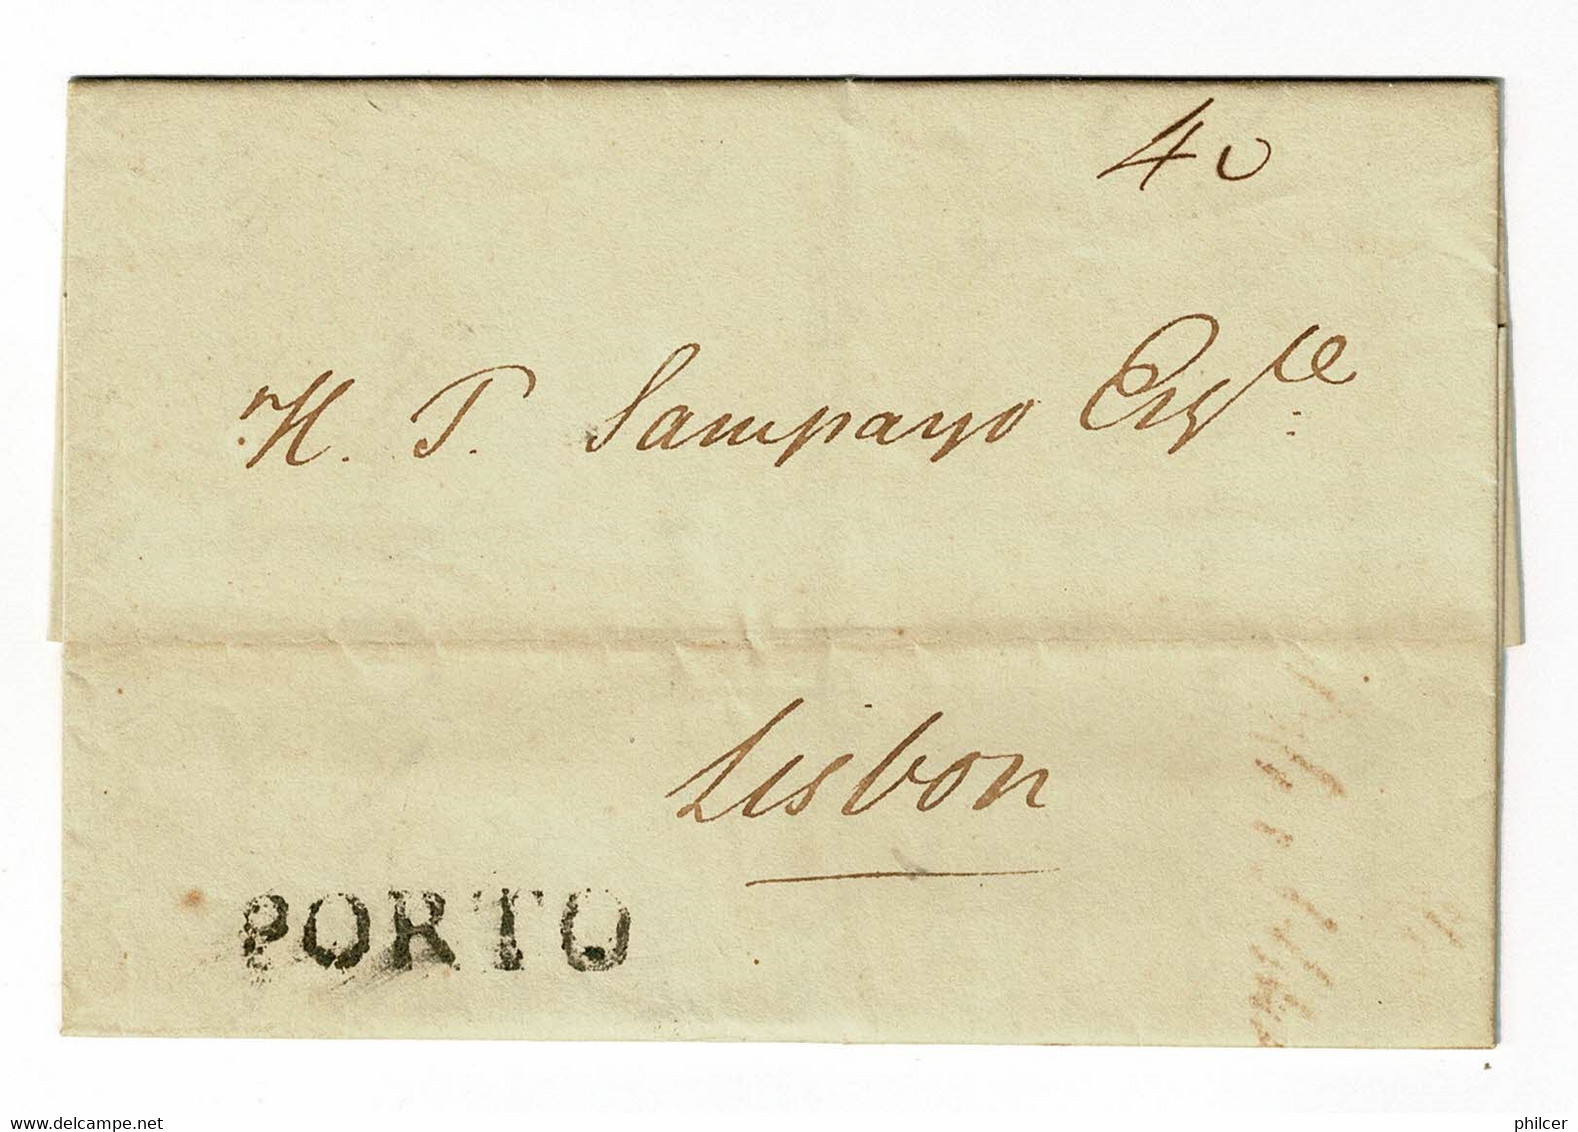 40
H. T. Sampayo Esqre
Lisbon
PORTO
www.delcampe.net
philcer